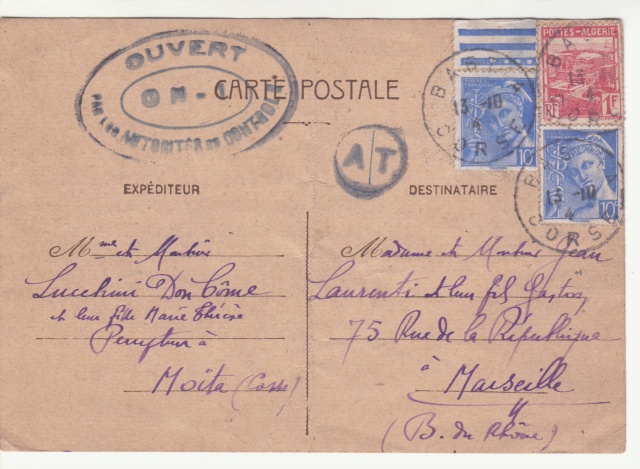 OUVERT
PAR LES AUTORITÉS DE CONTROLE
CARTE POSTALE
POSTES-ALGERIE
RF 1F
10c
10c
BASTIA
13-10
CORSE
BASTIA
13-10
CORSE
AT
EXPÉDITEUR
Mme et Monsieur
Lucchini Don Côme
et leur fille Marie Thérèse
à
Moïta (Corse)
DESTINATAIRE
Madame et Monsieur Jean
Laurenti et leur fils
75 Rue de la République
à Marseille
(B. du Rhône)